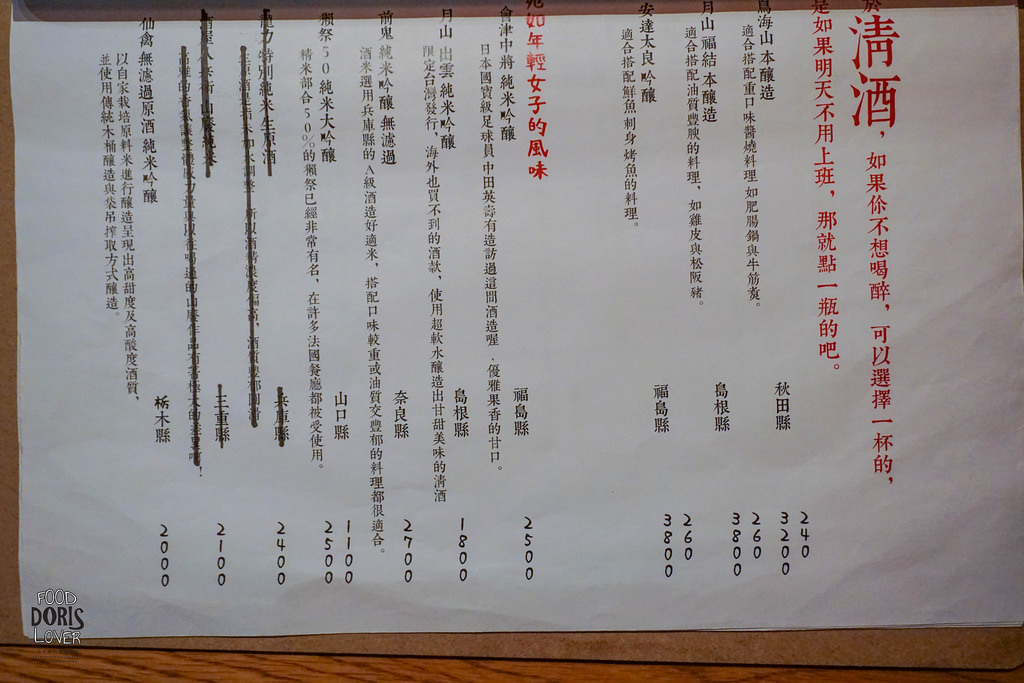 於清酒，如果你不想喝醉，可以選擇一杯的，
是如果明天不用上班，那就點一瓶的吧。
鳥海山 本釀造 秋田縣 240 3200
適合搭配重口味醬燒料理 如肥腸鍋與牛筋煲。
月山 福結 本釀造 島根縣 260 3800
適合搭配油質豐腴的料理，如雞皮與松阪豬。
安達太良 吟釀 福島縣 260 3800
適合搭配鮮魚刺身 烤魚的料理。
宛如年輕女子的風味
會津中將 純米吟釀 福島縣 2500
日本國寶級足球員 中田英壽有造訪過這間酒造喔，優雅果香的甘口。
月山 出雲 純米吟釀 島根縣 1800
限定台灣發行，海外也買不到的酒款，使用超軟水釀造出甘甜美味的清酒
前鬼 純米吟釀 無濾過 奈良縣 2700
酒米選用兵庫縣的A級酒造好適米，搭配口味較重或油質交豐郁的料理都很適合。
獺祭50 純米大吟釀 山口縣 1100 2500
精米部合50%的獺祭已經非常有名，在許多法國餐廳都被受使用。
特別純米生原酒 兵庫縣 2400
三重縣 2100
仙禽 無濾過原酒 純米吟釀 栃木縣 2000
以自家栽培原料米進行釀造呈現出高甜度及高酸度酒質，
並使用傳統木桶釀造與袋吊搾取方式釀造。
FOOD
DORIS
LOVER